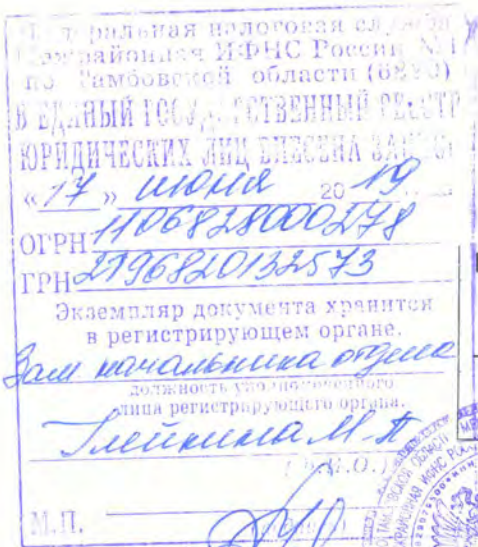 Федеральная налоговая служба
Межрайонная ИФНС России №1
по Тамбовской области (6820)
В ЕДИНЫЙ ГОСУДАРСТВЕННЫЙ РЕЕСТР
ЮРИДИЧЕСКИХ ЛИЦ ВНЕСЕНА ЗАПИСЬ
«17» июня 2019
ОГРН 1106828000278
ГРН 2196820132573
Экземпляр документа хранится
в регистрирующем органе.
Зам начальника отдела
должность уполномоченного
лица регистрирующего органа.
М.П.
(Ф.И.О.)
М.П.